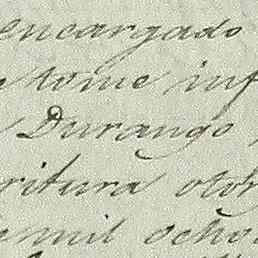 encargado
tome inf
Durango
ritura otor
mil ocho